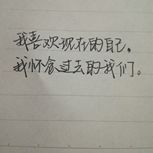 我喜欢现在的自己。
我怀念过去的我们。